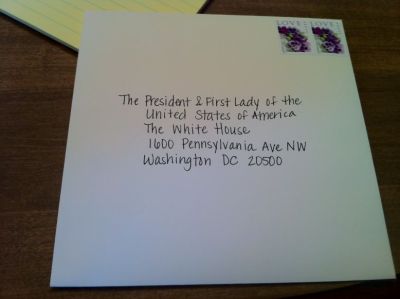 LOVE LOVE
The President & First Lady of the
United States of America
The White House
1600 Pennsylvania Ave NW
Washington DC 20500